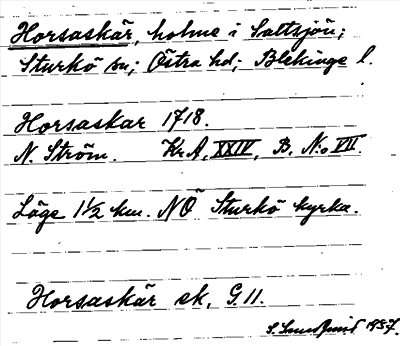 Horsaskär, holme i Saltsjön;
Sturkö sn; Östra hd; Blekinge l.
Horsaskar 1718.
N. Ström. Kr.A, XXIV, B. N:o VII.
Läge 1½ km. NÖ Sturkö kyrka.
Horsaskär ek. G. 11.
S. 1957.